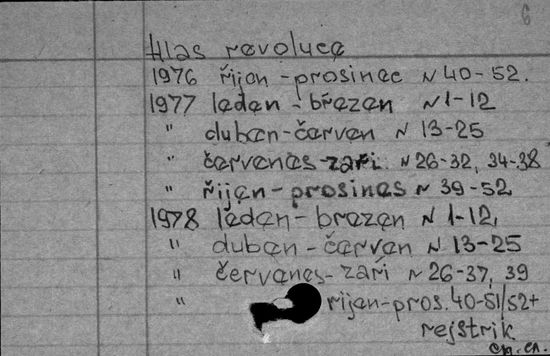 6
Hlas revoluce
1976 řijen - prosinec N 40-52.
1977 leden - březen N 1-12
" duben-červen N 13-25
" červenes-zaři N 26-32, 34-38
" řijen - prosines N 39-52
1978 leden - brezen N 1-12,
" duben - červen N 13-25
" červenes-zaři N 26-37, 39
" rijen-pros. 40-51/52+
rejstrik